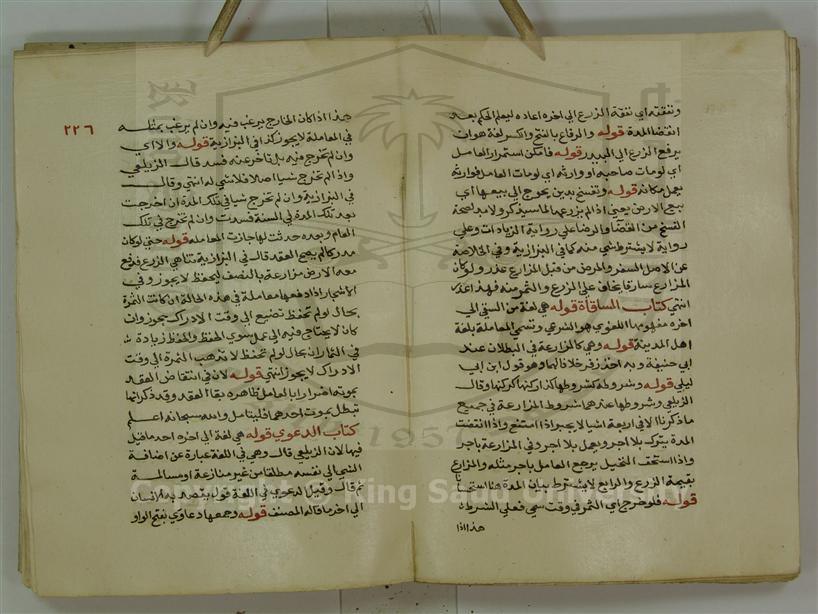 ونفقته اي نفقة الزرع الي اخره اعاده ليعلم الحكم بعد
انقضا المدة قوله والرفاع بالفتح والكسر لغة هو ان
يرفع الزرع الي البيدر قوله فامكن استمرار العامل
اي لو مات صاحبه او وارثه اي لو مات العامل فوارثه
يعمل مكانه قوله وتفسخ بدين يحوج الي بيعها اي
بيع الارض يعني اذا لم يزرعها لما سيذكر ولا بد لصحة
الفسخ من القضا والرضا علي رواية الزيادات وعلي
رواية لا يشترط شي منه كما في البزازية وفي الخلاصة
عن الاصل السفر والمرض من قبل المزارع عذر ولو كان
المزارع سارقا يخاف علي الزرع والثمر منه فهذا عذر
انتهي كتاب المساقاة قوله هي لغة من السقي الي
اخره مفهومها اللغوي هو الشرعي وتسمي المعاملة بلغة
اهل المدينة قوله وهي كالمزارعة في البطلان عند
ابي حنيفة وبه اخذ زفر خلافا لهما وهو قول ابن ابي
ليلي قوله وشروطه كشروطها كذا ركنها كركنها وقال
الزيلعي وشروطها عندهما شروط المزارعة في جميع
ما ذكرنا الا في اربعة اشيا لا يجبر اذا امتنع واذا انقضت
المدة يترك بلا اجر ويعمل بلا اجر وفي المزارعة باجر
واذا استحق النخيل يرجع العامل باجر مثله والمزارع
بقيمة الزرع والرابع لا يشترط بيان المدة هنا استحسانا
قوله فلو خرج اي الثمر في وقت سمي فعلي الشرط
هذا اذا
٢٢٦
هذا اذا كان الخارج يرغب فيه وان لم يرغب بمثله
في المعاملة لا يجوز كذا في البزازية قوله والا اي
وان لم تخرج فيه بل تاخر عنه فسد قال الزيلعي
واذا لم تخرج شيا اصلا فلا شي له انتهي وقال
في البزازية وان لم تخرج شيا في ذلك المدة ان اخرجت
بعد تلك المدة في السنة فسدت وان لم تخرج في تلك
العام وبعده حدثت لها جازت المعاملة قوله حتي لو كان
مدركا لم يصح العقد قال في البزازية تناهي الزرع فدفع
معه الارض مزارعة بالنصف ليحفظ لا يجوز وفي
الاشجار اذا دفعها معاملة في هذه الحالة ان كانت الثمرة
بحال لو لم تحفظ تضيع الي وقت الادراك يجوز وان
كان لا يحتاج فيه الي عمل سوي الحفظ والحفظ زيادة
في الثمار ان بحال لو لم تحفظ لا تذهب الثمرة الي وقت
الادراك لا يجوز انتهي قوله لان في انتقاض العقد
بموته اضرارا بالعامل ظاهره بقا العقد وقد ذكر انها
تبطل بموت احدهما فليتامل والله سبحانه اعلم
كتاب الدعوي قوله هي لغة الي اخره احد ما قيل
فيها لان الزيلعي قال وهي في اللغة عبارة عن اضافة
الشي الي نفسه مطلقا من غير منازعة او مسالمة
ثم قال وقيل الدعوي في اللغة قول يقصد به الانسان
الي اخر ما قاله المصنف قوله وجمعها دعاوي بفتح الواو
Copyright © King Saud University
1957